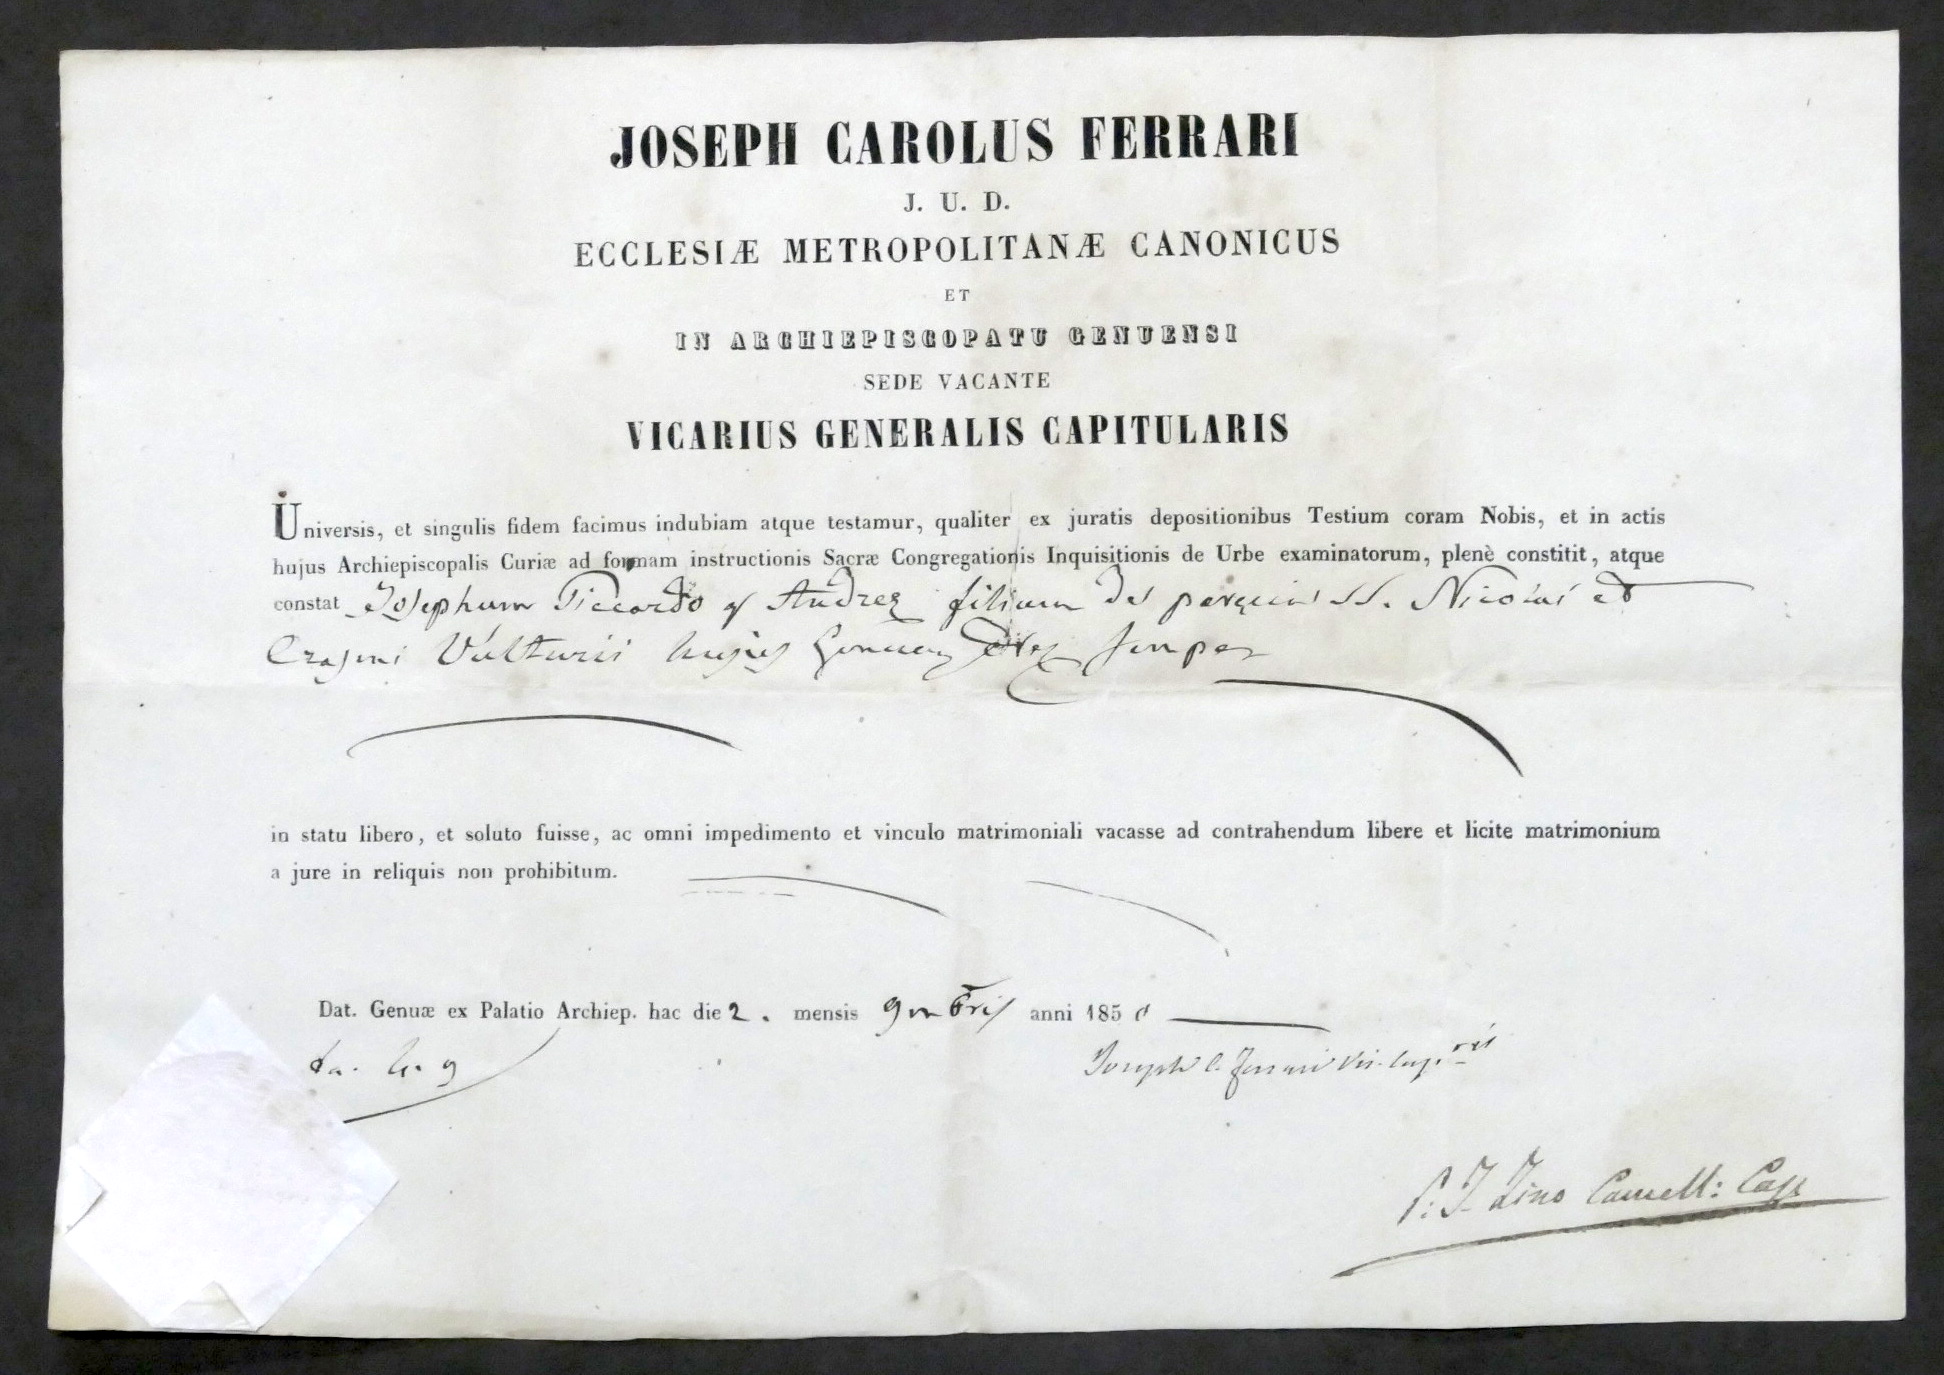 JOSEPH CAROLUS FERRARI
J. U. D.
ECCLESIÆ METROPOLITANÆ CANONICUS
ET
IN ARCHIEPISCOPATU GENUENSI
SEDE VACANTE
VICARIUS GENERALIS CAPITULARIS
Universis, et singulis fidem facimus indubiam atque testamur, qualiter ex juratis depositionibus Testium coram Nobis, et in actis
hujus Archiepiscopalis Curiæ ad formam instructionis Sacræ Congregationis Inquisitionis de Urbe examinatorum, plenè constitit, atque
constat Josephum Piccardo q Andreæ filium de SS. Nicolai et
Erasmi Vulturii hujus semper
in statu libero, et soluto fuisse, ac omni impedimento et vinculo matrimoniali vacasse ad contrahendum libere et licite matrimonium
a jure in reliquis non prohibitum.
Dat. Genuæ ex Palatio Archiep. hac die 2. mensis 9mbris anni 185
Joseph C. Ferrari Vic. Cap.ris
P: J. Zino Cancell: